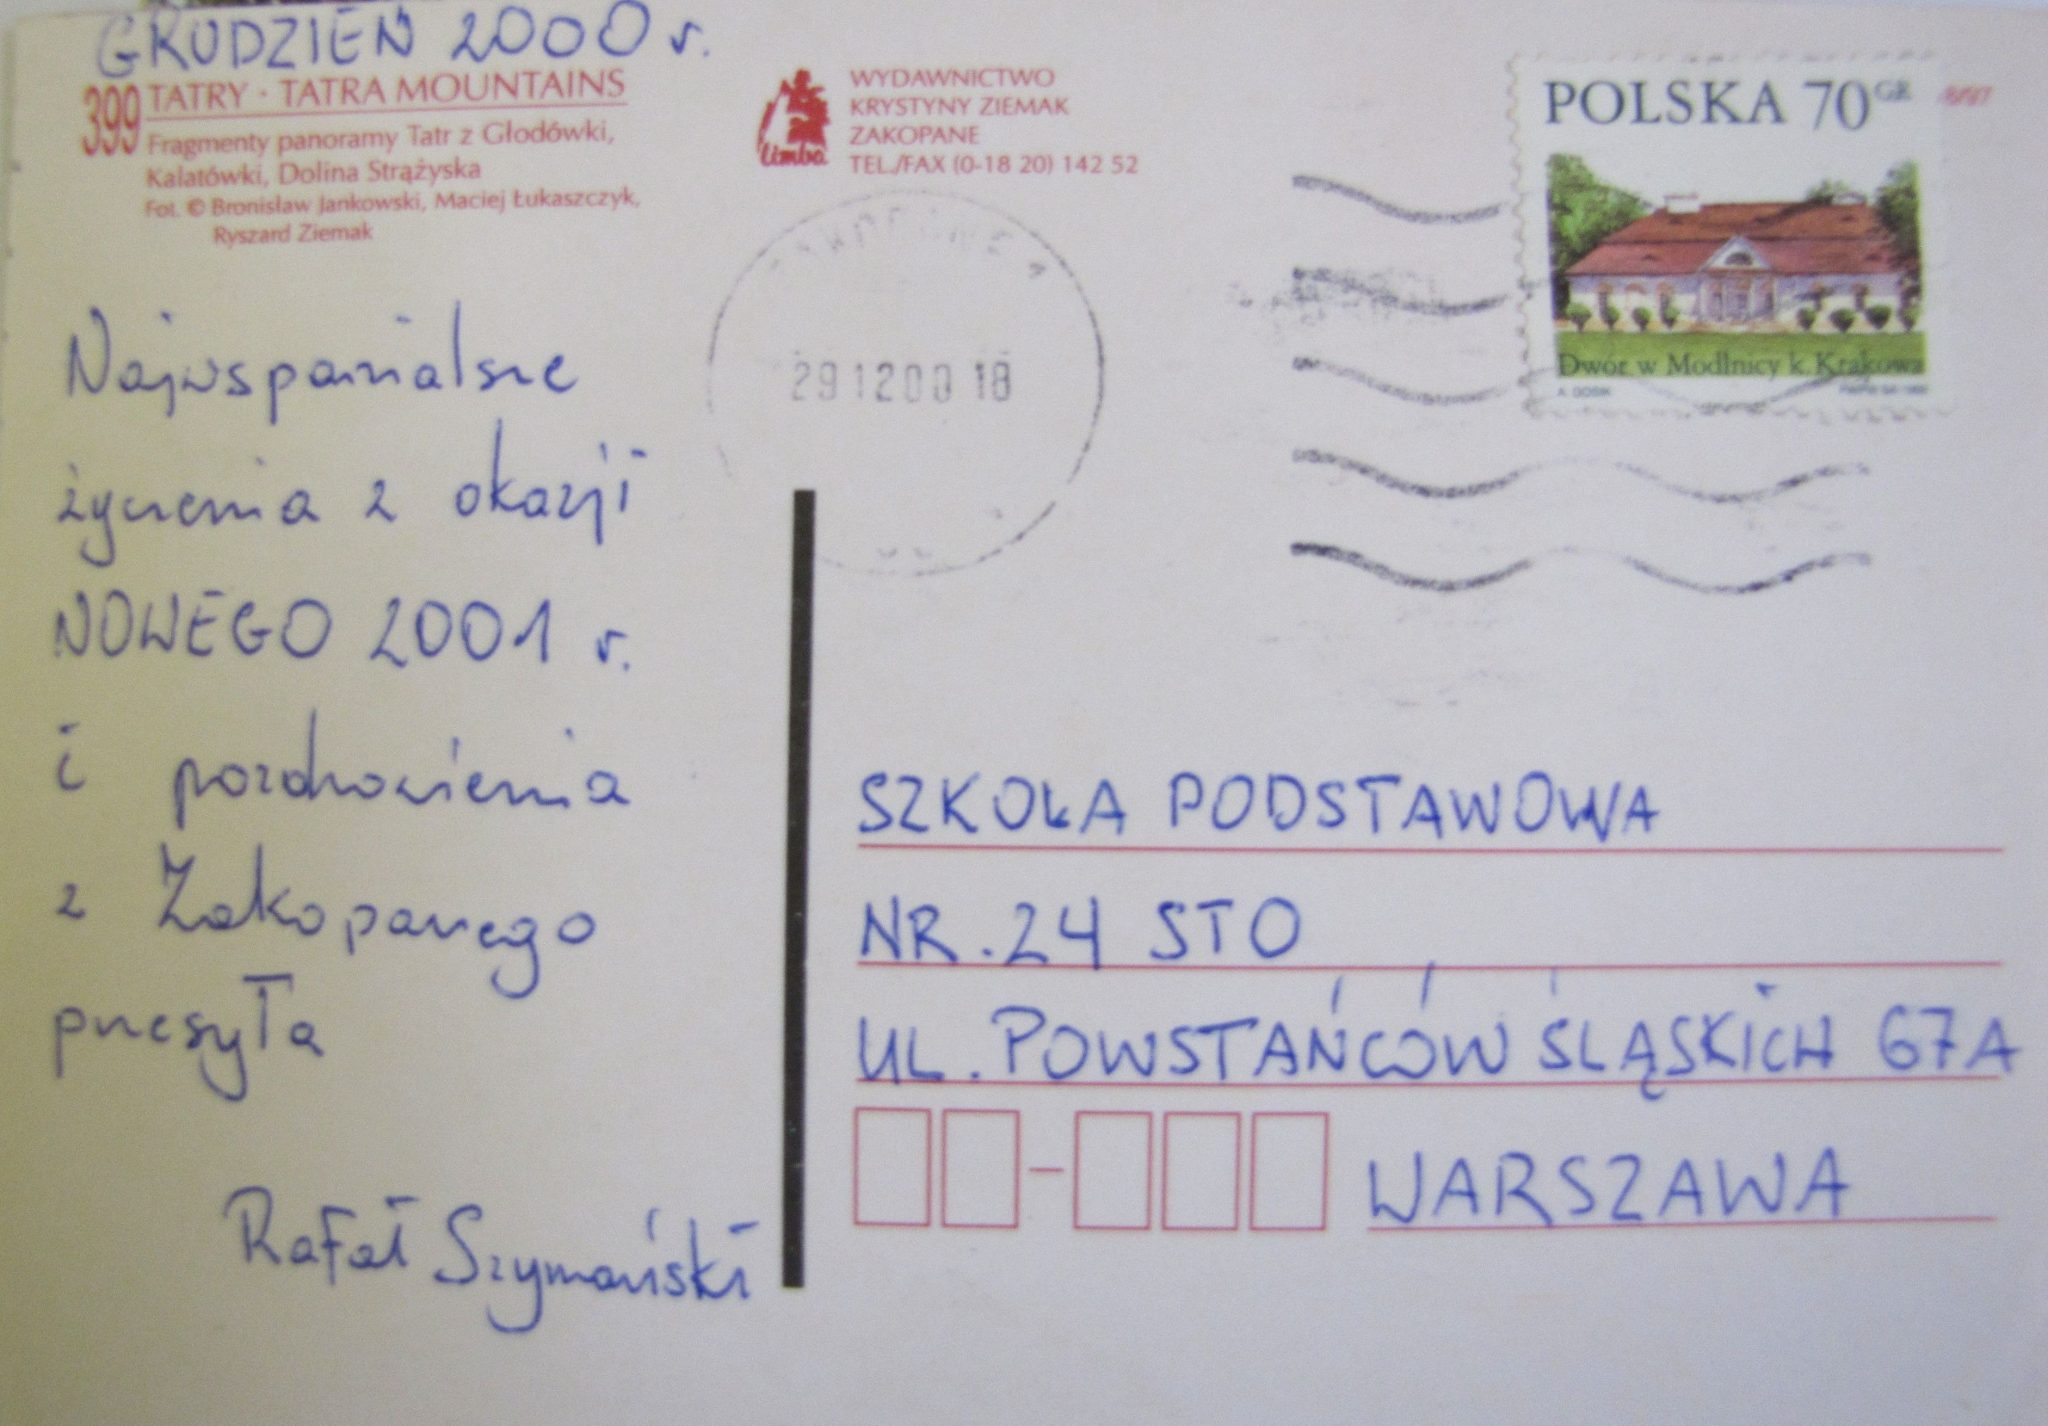 GRUDZIEŃ 2000 r.
399 TATRY · TATRA MOUNTAINS
Fragmenty panoramy Tatr z Głodówki,
Kalatówki, Dolina Strążyska
Fot. © Bronisław Jankowski, Maciej Łukaszczyk,
Ryszard Ziemak
Limba
WYDAWNICTWO
KRYSTYNY ZIEMAK
ZAKOPANE
TEL./FAX (0-18 20) 142 52
POLSKA 70 GR
Dwór w Modlnicy k. Krakowa
29 12 00 18
Najwspanialsze
życzenia z okazji
NOWEGO 2001 r.
i pozdrowienia
z Zakopanego
przesyła
Rafał Szymański
SZKOŁA PODSTAWOWA
NR. 24 STO
UL. POWSTAŃCÓW ŚLĄSKICH 67A
WARSZAWA